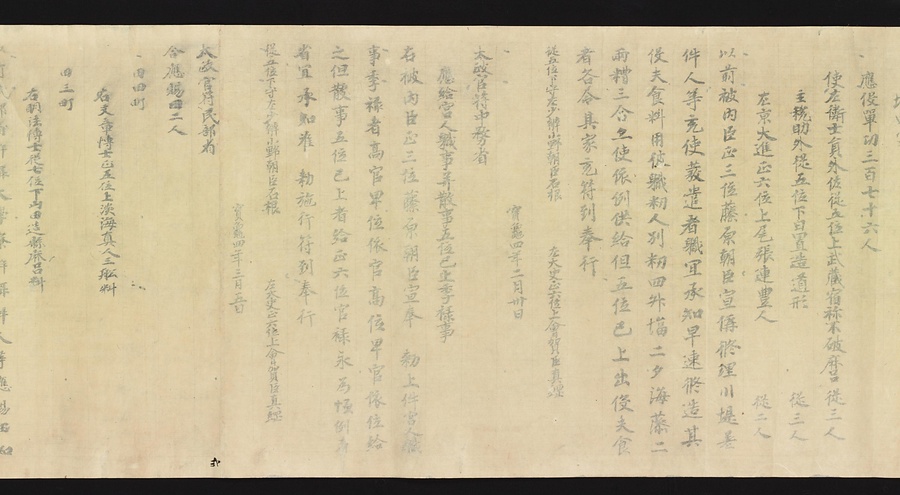 應役單功三百七十六人
使左衛士員外佐從五位上武藏宿祢不破麻呂 從三人
主税助外從五位下日置造道形 從三人
左京大進正六位上尾張連豊人 從二人
以前被内臣正三位藤原朝臣宣偁修理川堤差
件人等充使發遣者職宜承知早速修造其
役夫食料用彼職粉人別粉四升塩二夕海藻二
兩糟三合並使依例供給但五位已上出役夫食
者各令其家充符到奉行
從五位下守左少辨小野朝臣石根 左大史正六位上會賀臣真綱
寳龜四年二月卅日
太政官符中務省
應給宮人職事并散事五位已上季禄事
右被内臣正三位藤原朝臣宣奉 勅上件宮人職
事季禄者高官卑位依官高位卑官依位給
之但散事五位已上者給正六位官禄永為恒例者
省宜承知准 勅施行符到奉行
從五位下守左少辨小野朝臣石根 左大史正六位上會賀臣真綱
寳龜四年三月五日
太政官符民部省
合應賜田二人
田四町
右文章博士正五位上淡海真人三船料
田三町
右明法博士從七位下山田造縣麻呂料